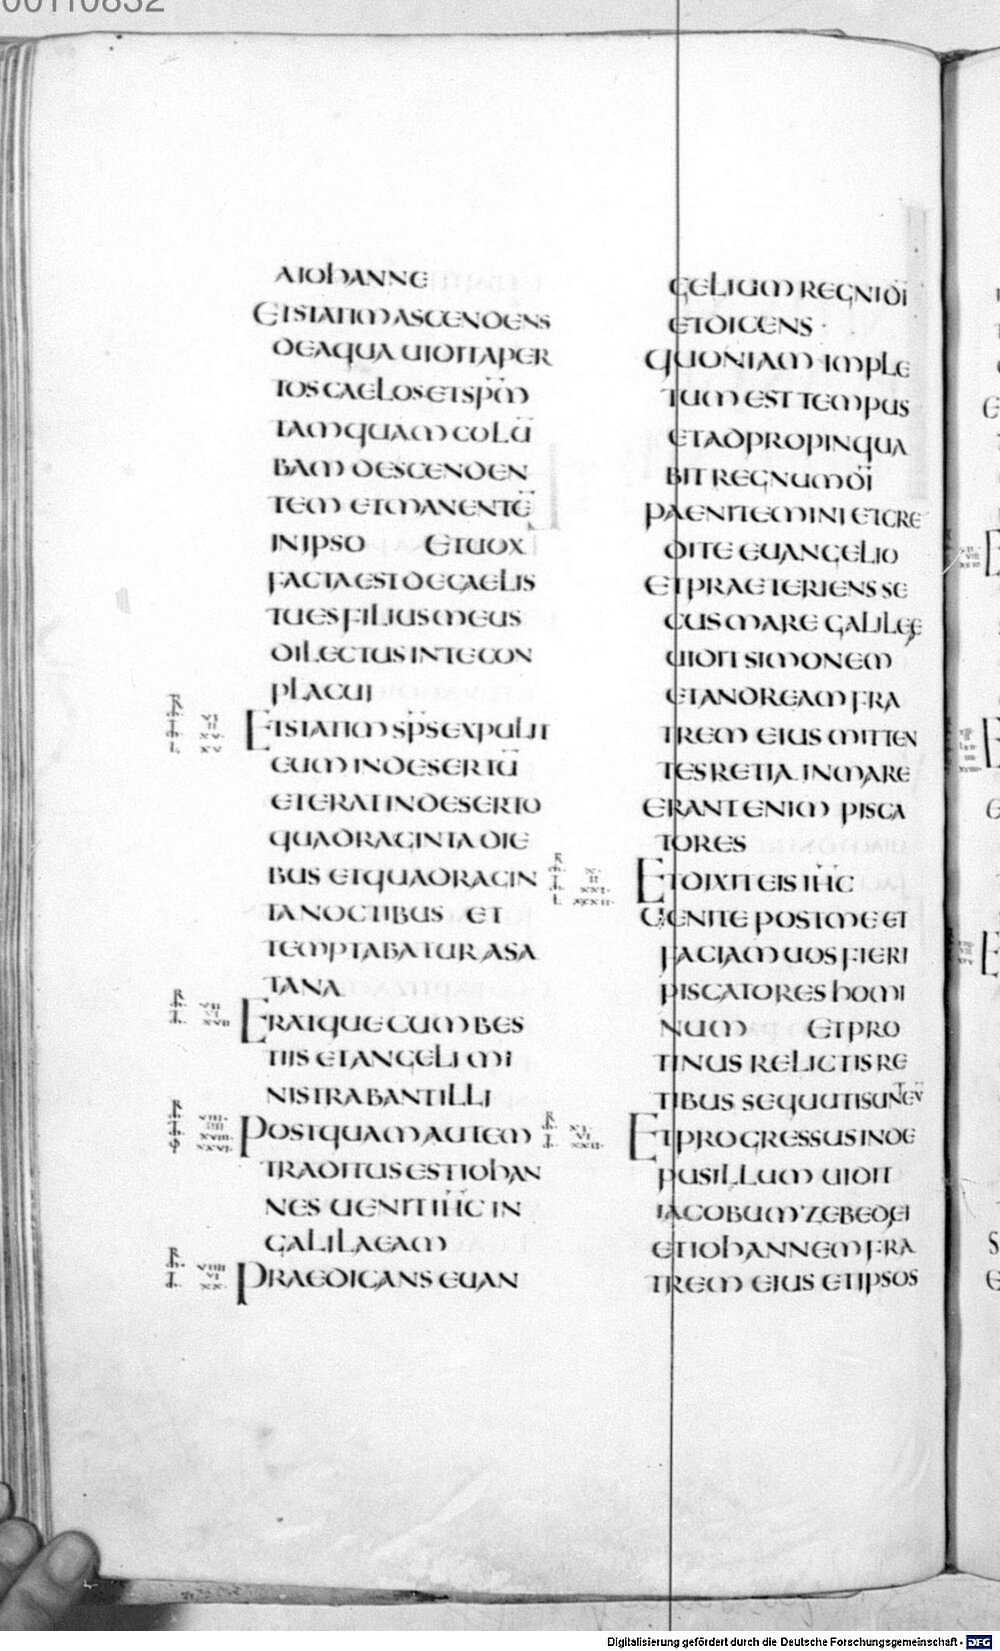 00110832
AIOHANNE
ETSTATIMASCENDENS
DEAQUA UIDITAPER
TOSCAELOSETSPM
TAMQUAMCOLŪ
BAM DESCENDEN
TEM ETMANENTĒ
INIPSO ETUOX
FACTAESTDECAELIS
TUESFILIUSMEUS
DILECTUSINTECON
PLACUI
ETSTATIMSPSEXPULIT
EUMINDESERTŪ
ETERATINDESERTO
QUADRAGINTADIE
BUS ETQUADRAGIN
TANOCTIBUS ET
TEMPTABATURASA
TANA
ERATQUECUMBES
TIISETANGELIMI
NISTRABANTILLI
POSTQUAMAUTEM
TRADITUSESTIOHAN
NES UENITIHCIN
GALILAEAM
PRAEDICANSEUAN
VI
II
XV
XV
VII
VI
XVII
VIII
IIII
XVIII
XXVI
VIIII
VI
XX
GELIUMREGNIDI
ETDICENS
QUONIAMIMPLE
TUMESTTEMPUS
ETADPROPINQUA
BITREGNUMDI
PAENITEMINIETCRE
DITEEUANGELIO
ETPRAETERIENSSE
CUSMAREGALILEE
UIDITSIMONEM
ETANDREAMFRA
TREM EIUSMITTEN
TESRETIA INMARE
ERANTENIM PISCA
TORES
ETDIXITEISIHC
UENITEPOSTMEET
FACIAMUOSFIERI
PISCATORESHOMI
NUM ETPRO
TINUSRELICTISRE
TIBUSSEQUUTISUNEV
ETPROGRESSUSINDE
PUSILLUM UIDIT
IACOBUM ZEBEDEI
ETIOHANNEMFRA
TREM EIUSETIPSOS
X
II
XXI
XXXII
XI
VI
XXII
Digitalisierung gefördert durch die Deutsche Forschungsgemeinschaft - DFG